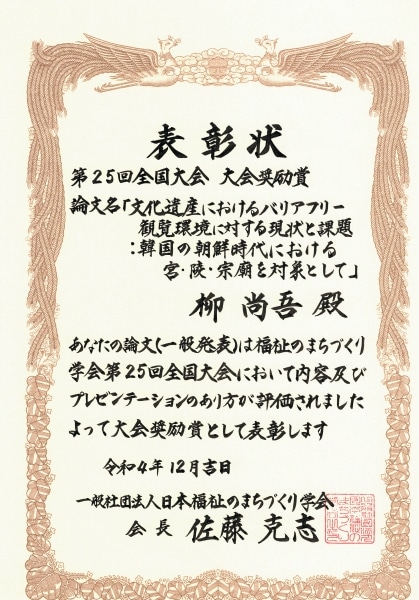 表彰状
第25回全国大会 大会奨励賞
論文名「文化遺産におけるバリアフリー
観覧環境に対する現状と課題
:韓国の朝鮮時代における
宮・陵・宗廟を対象として」
柳 尚吾 殿
あなたの論文(一般発表)は福祉のまちづくり
学会第25回全国大会において内容及び
プレゼンテーションのあり方が評価されました
よって大会奨励賞として表彰します
令和4年12月吉日
一般社団法人日本福祉のまちづくり学会
会長 佐藤克志